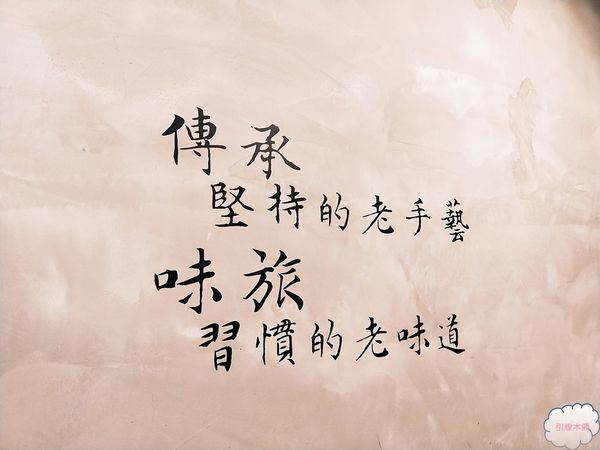 傳承
堅持的老手藝
味旅
習慣的老味道
引線木偶